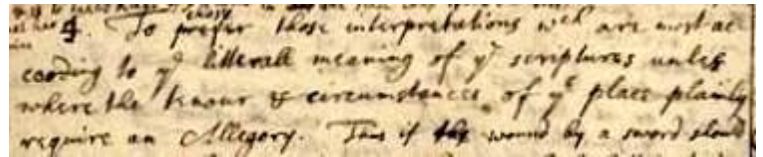 4. To prefer chose those interpretations wch are most ac
cording to ye litterall meaning of ye scriptures unles
where the tenour & circumstances of ye place plainly
require an Allegory. Thus if the wound by a sword should